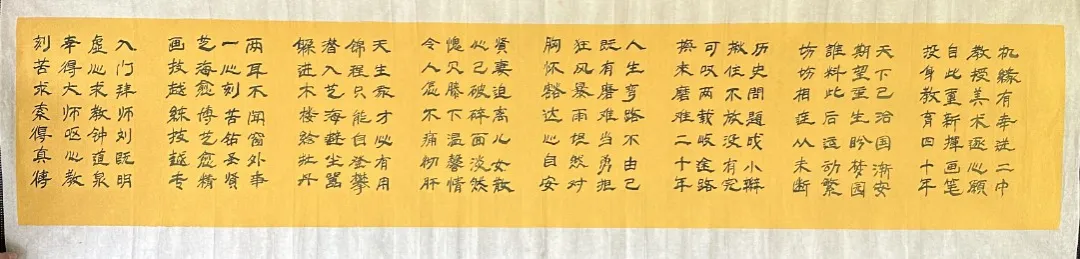 机緣有幸进二中
教授美术遂心願
自此重新揮画笔
投身教育四十年
天下已治国漸安
期望重生盼梦园
誰料此后运动繁
坊坊相连从未断
历史问题成小辮
揪住不放没有完
可叹两载岐途路
换来磨难二十年
人生弯路不由己
既有磨难当勇担
狂风暴雨坦然对
胸怀豁达心自安
贤妻迫离儿女散
心已破碎面淡然
愧欠膝下温馨情
令人不痛彻肝
天生我才必有用
锦程只能自登攀
潜入艺海避尘嚣
躲进木楼绘牡丹
两耳不闻窗外事
一心刻苦钻圣贤
艺海愈博艺愈精
画技越練技越专
入门拜师刘既明
虚心求教钟道泉
幸得大师呕心教
刻苦求索得真傳